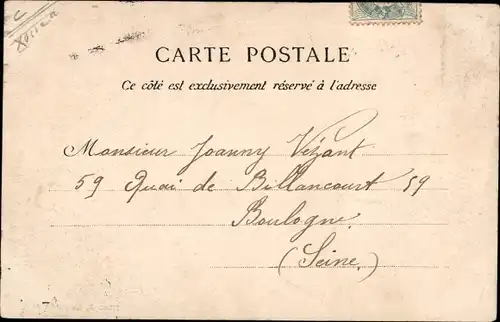 CARTE POSTALE
Ce côté est exclusivement réservé à l'adresse
Monsieur Joanny Vézant
59 Quai de Billancourt 59
Boulogne
(Seine.)